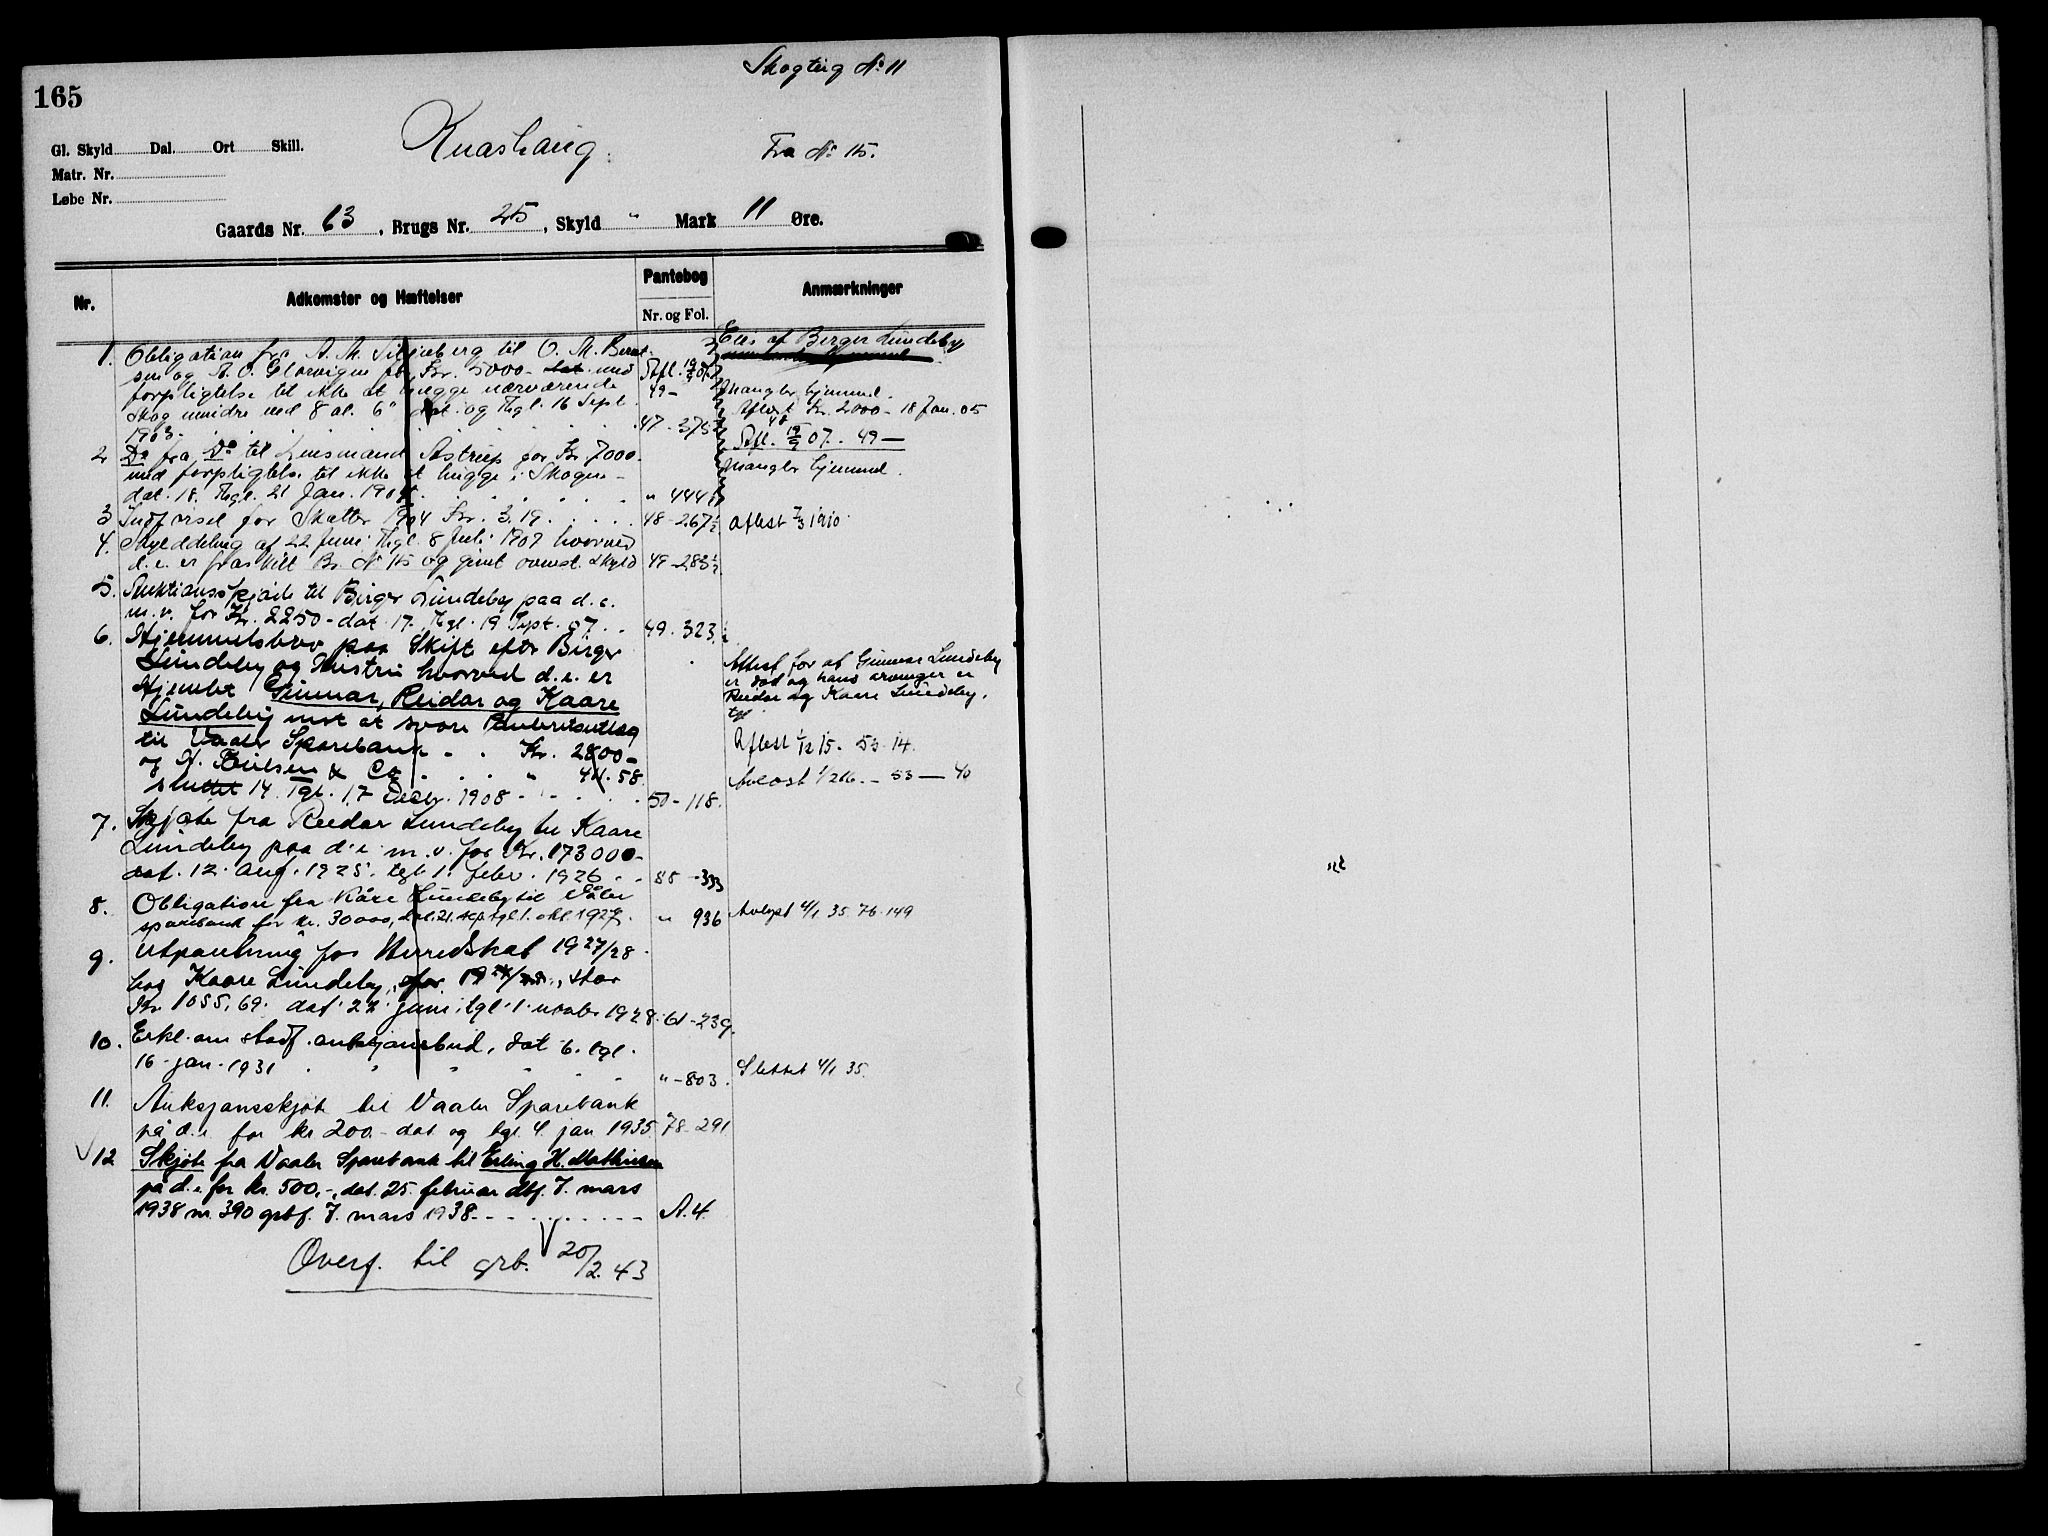 165
Skogteig No 11
Knashaug.
Fra No 15.
Gl. Skyld Dal. Ort Skill.
Matr. Nr.
Løbe Nr.
Gaards Nr. 63, Brugs Nr. 25, Skyld " Mark 11 Øre.
Nr. Adkomster og Hæftelser Pantebog Nr. og Fol. Anmærkninger
1. Obligation fra A. M. til O. M. Bernt- Eies af Birger Lundeby
sen og A. O. Glorvigen for Kr. 5000 - med Afl. 19/9 07
forpligtelse til ikke at hugge nærværende 49 - Mangler hjemmel.
Skog mindre end 8 al. 6" dat. og Thgl. 16 Sept. Aflæst Kr. 2000 - 18 Jan. 05
1903. 47 - 375 48
Afl. 19/9 07. 49 —
2 Do fra Do til Lensmand Astrup for Kr. 7000.
med forpligtelse til ikke at hugge i Skogen - Mangler hjemmel.
dat. 18. Thgl. 21 Jan. 1904. " 444
3 for Skatter 1904 Kr. 3.19. 48 - 267½ Aflæst 7/3 1910.
4. Skylddeling af 22 Juni Thgl. 8 Juli 1907 hvorved
d. e. er fraskilt Br. No 15 og givet ovenst. Skyld 49 - 283½
5. Auktionsskjøde til Birger Lundeby paa d. e.
m. v. for Kr. 2250 - dat. 17. Thgl. 19 Sept. 07. 49. 323.
6. Hjemmelsbrev paa Skift efter Birger
Lundeby og Hustru hvorved d. e. er Attest for at Gunnar Lundeby
Hjemlet Gunnar, Reidar og Kaare er død og hans arvinger er
Lundeby mot at svare Reidar og Kaare Lundeby.
til Vaaler Sparebank - - . Kr. 2800 - Aflæst 1/12 15. 53. 14.
og N. & Co . . . " 44. 58. Avlæst 1/2 16. - 53 — 40
sluttet 14. Tgl. 17 Decbr. 1908 - - - 50 - 118.
7. Skjøte fra Reidar Lundeby til Kaare
Lundeby paa d. e. m. v. for Kr. 173000 -
dat. 12. aug. 1925. tgl. 1. febr. 1926 . . 55 - 333
8. Obligation fra Kåre Lundeby til Våler
sparebank for kr. 30000, dat. 21. sep. tgl. 1. okt. 1927. " 936 Avlyst 4/1 35. 76. 149
9. Utpantning for Herredskat 1927/28
hos Kaare Lundeby, stor
Kr. 1055,69. dat. 22. juni, tgl. 1. novbr. 1928. 61 - 239.
10. Erkl. om stadf. auksjonsbud, dat. 6. tgl.
16. jan. 1931 " - 803. Slettet 4/1 35.
11. Auksjonsskjøte til Vaaler Sparebank
på d. e. for kr 200.- dat og tgl. 4. jan 1935 78 - 291
12 Skjøte fra Vaaler Sparebank til Erling H. Mathisen
på d. e. for kr. 500,-, dat. 25. februar dbf. 7. mars
1938 nr. 390 grbf. 7. mars 1938. A. 4.
Overf. til grb. 20/2. 43